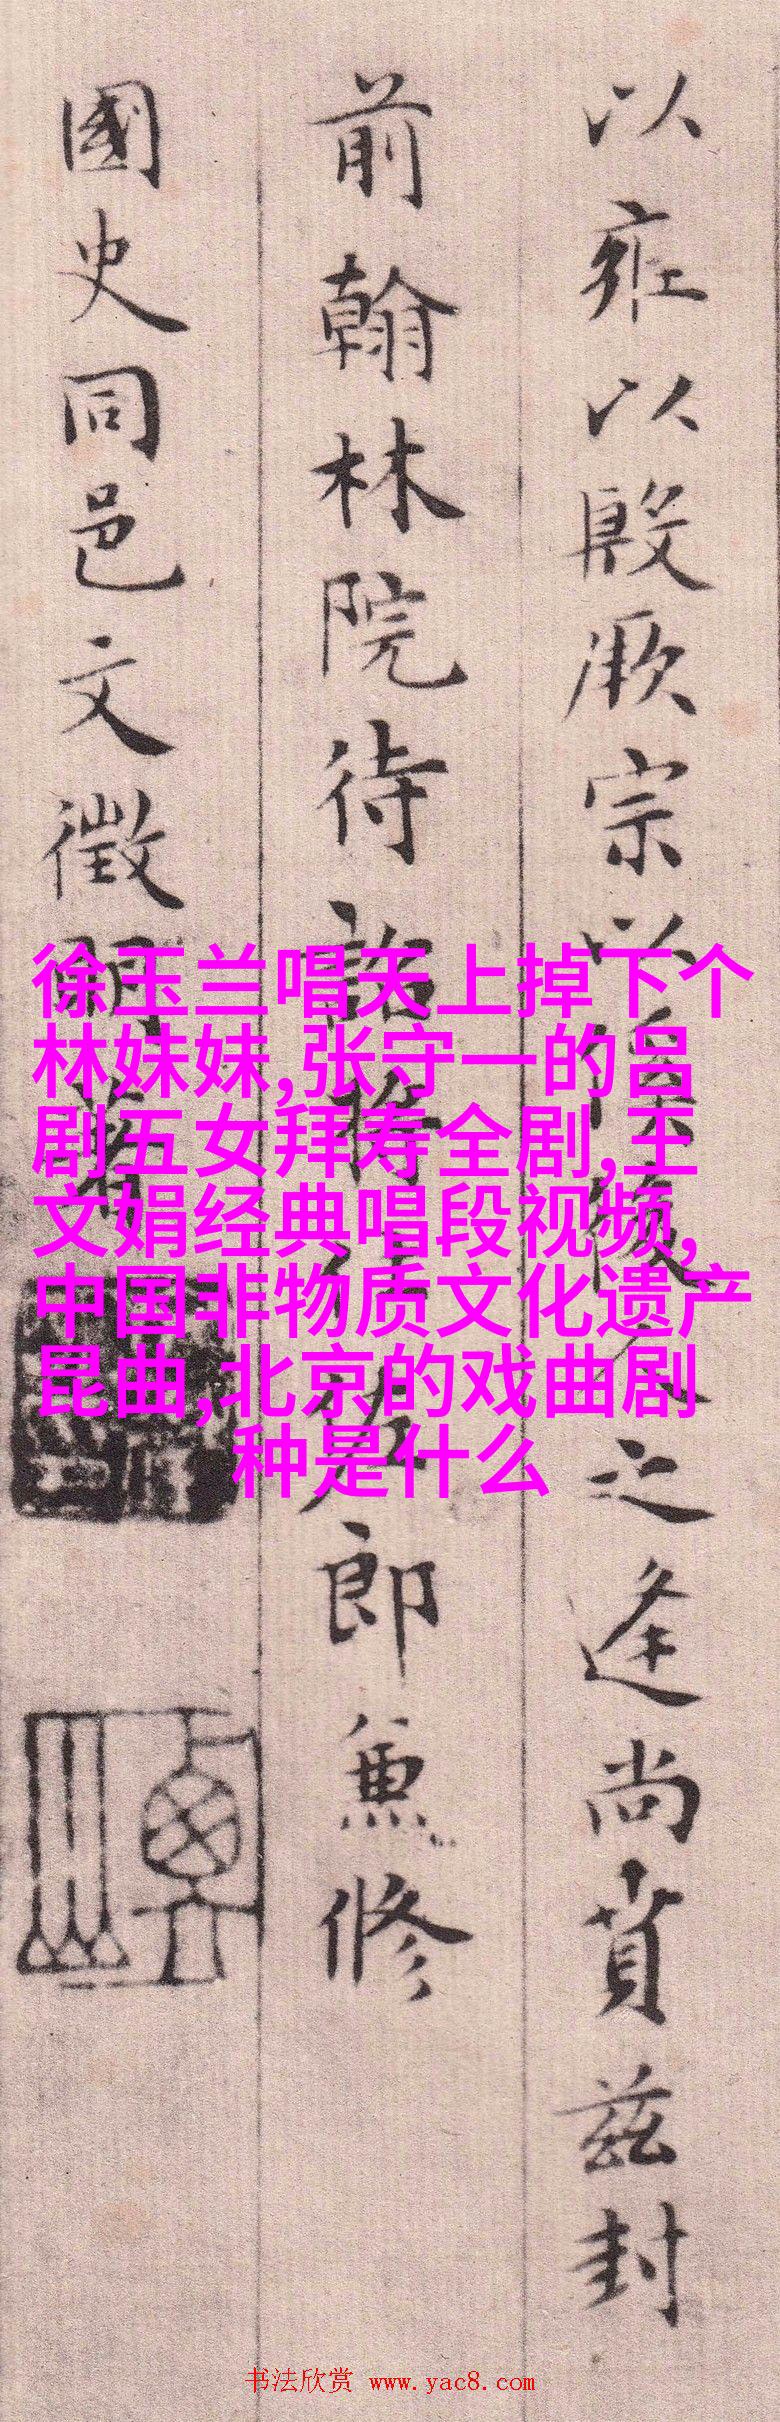 以雍以殷厥宗以保後人之逢尚賁茲封
前翰林院待詔將仕佐郎兼修
國史同邑文徵明
徐玉兰唱天上掉下个
林妹妹,张守一的吕
剧五女拜寿全剧,王
文娟经典唱段视频,
中国非物质文化遗产
昆曲,北京的戏曲剧
种是什么
书法欣赏 www.yac8.com